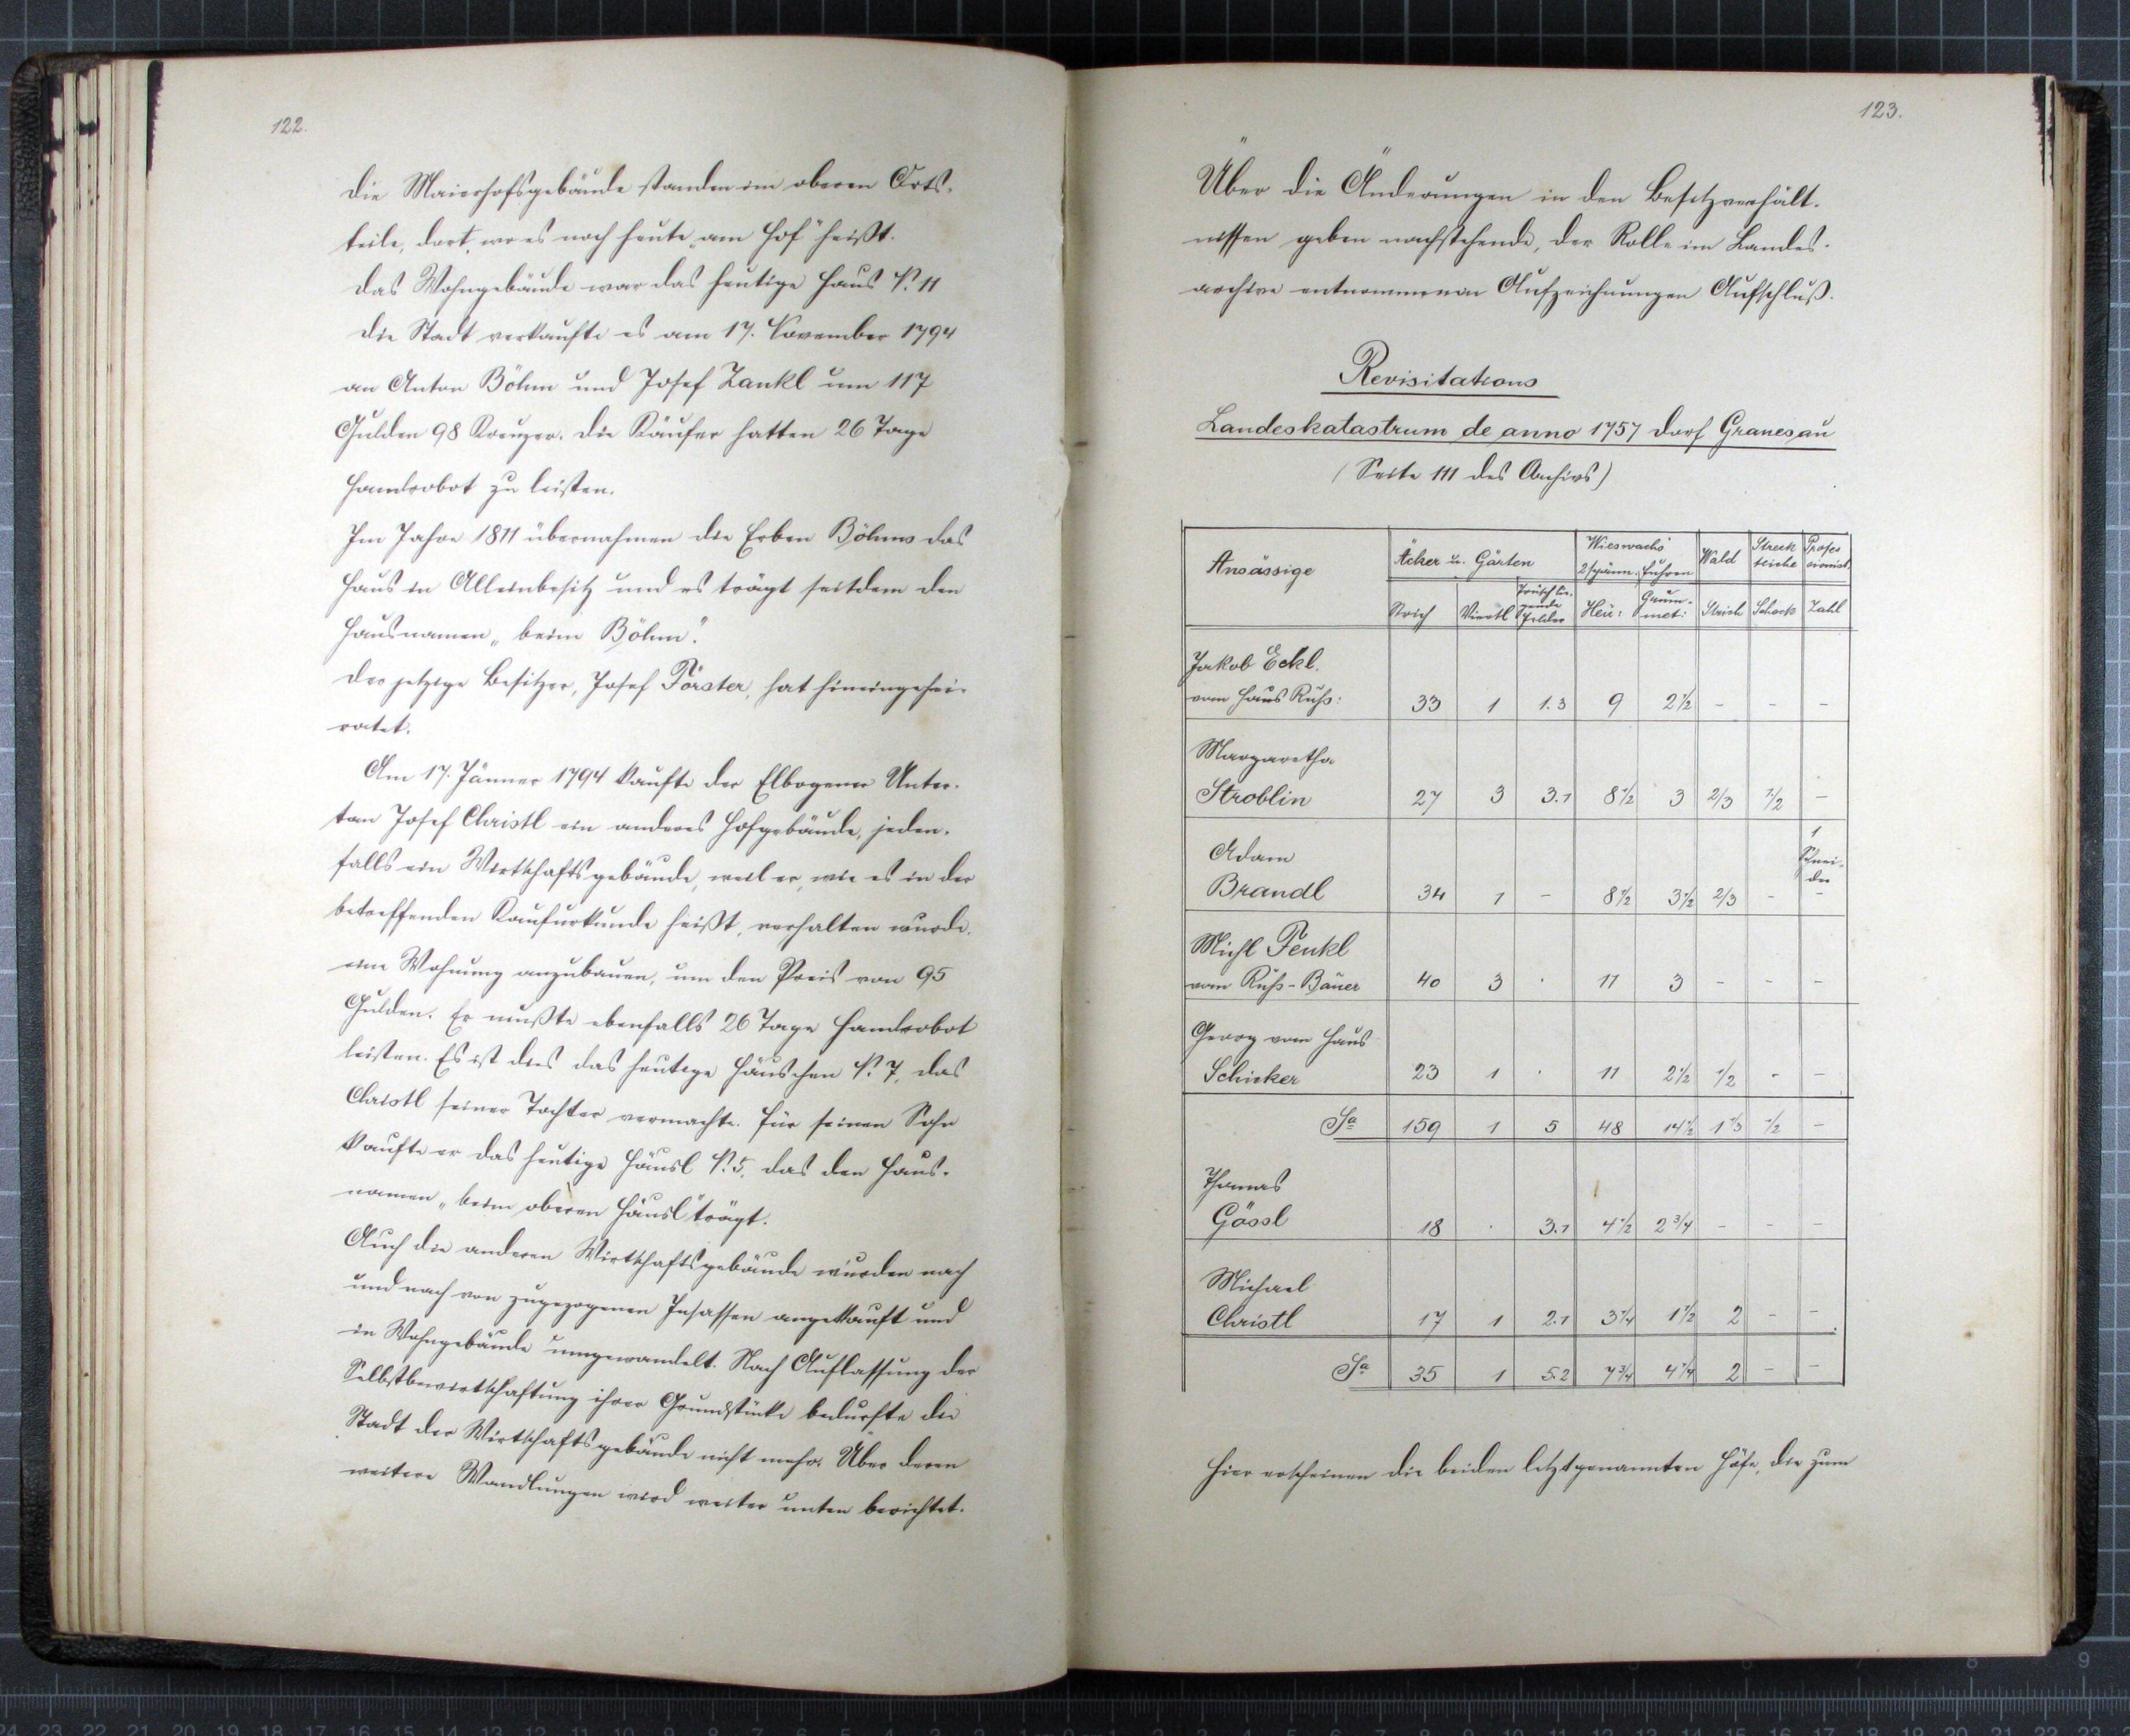 122.
Die Maierhofsgebäude standen im oberen Orts-
teile, dort, wo es noch heute „am Hof" heißt.
Das Wohngebäude war das heutige Haus N. 11
Die Stadt verkaufte es am 17. November 1794
an Anton Böhm und Josef Zankl um 117
Gulden 98 Kreuzer. Die Käufer hatten 26 Tage
Handrobot zu leisten.
Im Jahre 1811 übernahmen die Erben Böhms das
Haus in Alleinbesitz und es trägt seitdem den
Hausnamen „beim Böhm".
Der jetzige Besitzer, Josef Törster, hat hineingehei-
ratet.
Am 17. Jänner 1794 kaufte der Elbogener Unter-
tan Josef Christl ein anderes Hofgebäude, jeden-
falls ein Wirtschaftsgebäude, weil er, wie es in der
betreffenden Kaufurkunde heißt, verhalten wurde,
eine Wohnung anzubauen, um den Preis von 95
Gulden. Er mußte ebenfalls 26 Tage Handrobot
leisten. Es ist dies das heutige Häuschen N. 7, das
Christl seiner Tochter vermachte. Für seinen Sohn
kaufte er das heutige Häusl N. 5, das den Haus-
namen „beim oberen Häusl" trägt.
Auch die anderen Wirtschaftsgebäude wurden nach
und nach von zugezogenen Insassen angekauft und
in Wohngebäude umgewandelt. Nach Auflassung der
Selbstbewirtschaftung ihrer Grundstücke bedurfte die
Stadt der Wirtschaftsgebäude nicht mehr. Über deren
weitere Wandlungen wird weiter unten berichtet.
123.
Über die Änderungen in den Besitzverhält-
nissen geben nachstehende, der Rolle im Landes-
archive entnommenen Aufzeichnungen Aufschluß.
Revisitations
Landeskatastrum de anno 1757 Dorf Granesau
(Seite 111 des Archivs)
Ansässige Äcker u. Gärten Wieswachs 2 spänn. Fuhren Wald Streck teiche Profes sionist.
Strich Viertl Felder Heu: Grum- met: Strich Schock Zahl
Jakob Eckl.
vom Haus Russ: 33 1 1.3 9 2 1/2 - - -
Margaretha
Stroblin 27 3 3.1 8 1/2 3 2/3 1/2 -
Adam 1 Schnei- der
Brandl 34 1 - 8 1/2 3 1/2 2/3 - -
Michl Fenkl
vom Russ-Bauer 40 3 . 11 3 - - -
Georg vom Haus
Schicker 23 1 . 11 2 1/2 1/2 - -
Sa 159 1 5 48 14 1/2 1 1/3 1/2 -
Thomas
Gössl 18 . 3.1 4 1/2 2 3/4 - - -
Michael
Christl 17 1 2.1 3 1/4 1 1/2 2 - -
Sa 35 1 5.2 7 3/4 4 1/4 2 - -
Hier erscheinen die beiden letztgenannten Höfe, die zum